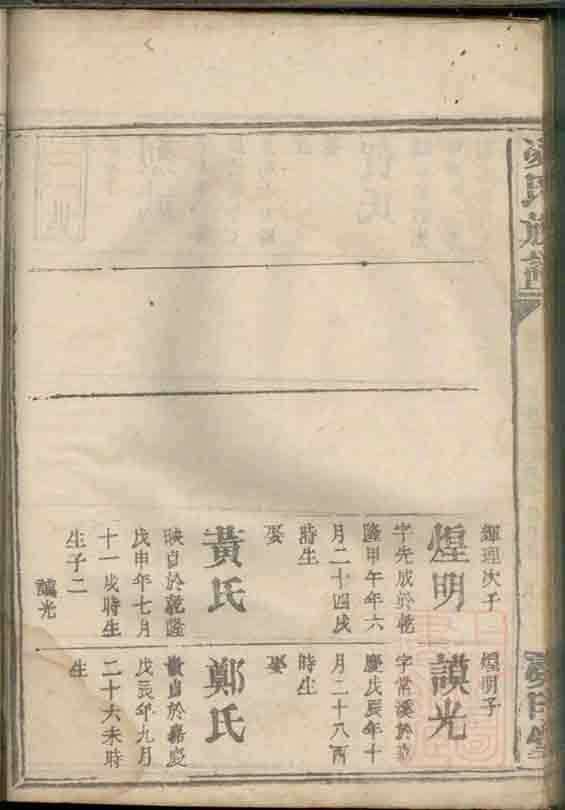 氏族譜
輝理次子
煌明
字先成於乾
隆甲午年六
月二十四戌
時生
娶
黃氏
映自於乾隆
戊申年七月
十一戌時生
生子二
煌明子
謨光
字常溪於嘉
慶戊辰年十
月二十八酉
時生
娶
鄭氏
自於嘉慶
戊辰年九月
二十六未時
生